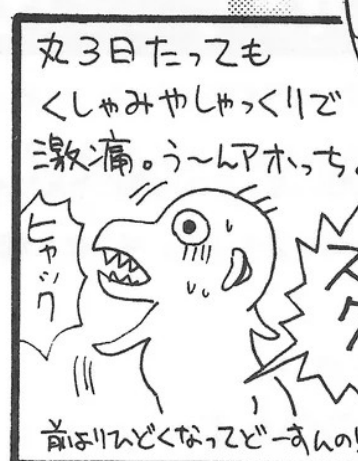 丸3日たっても
くしゃみやしゃっくりで
激痛。う〜んアホっち。
ヒャック
前よりひどくなってどーすんの!